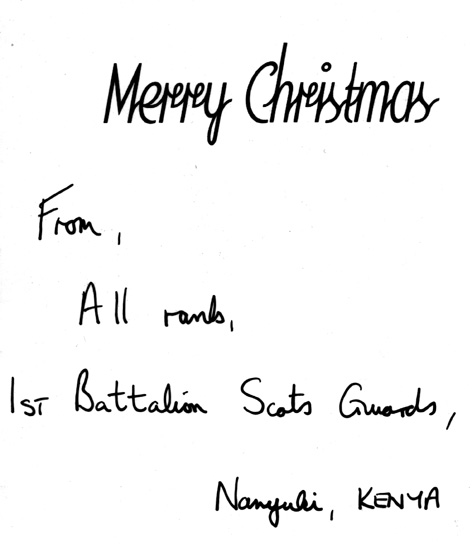 Merry Christmas
From,
All ranks,
1ST Battalion Scots Guards,
Nanyuki, KENYA